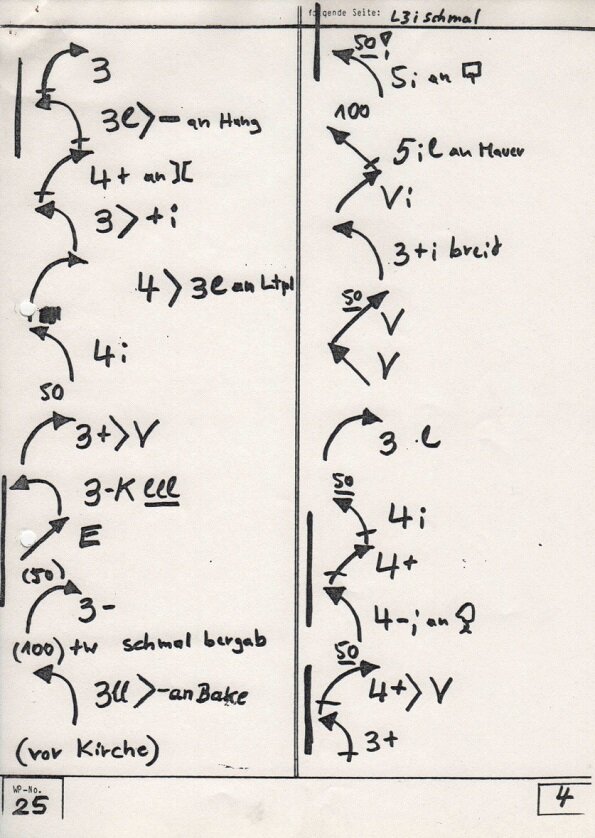 folgende Seite: L3i schmal
3
3l>− an Hang
4+ an ][
3>+i
4>3l an Ltpl
4i
50
3+>V
3-K lll
E
(50)
3-
(100) +w schmal bergab
3ll>-an Bake
(vor Kirche)
WP-No.
25
50!
5i an
100
5il an Mauer
Vi
3+i breit
50
V
V
3 l
50
4i
4+
4-i an
50
4+>V
3+
4